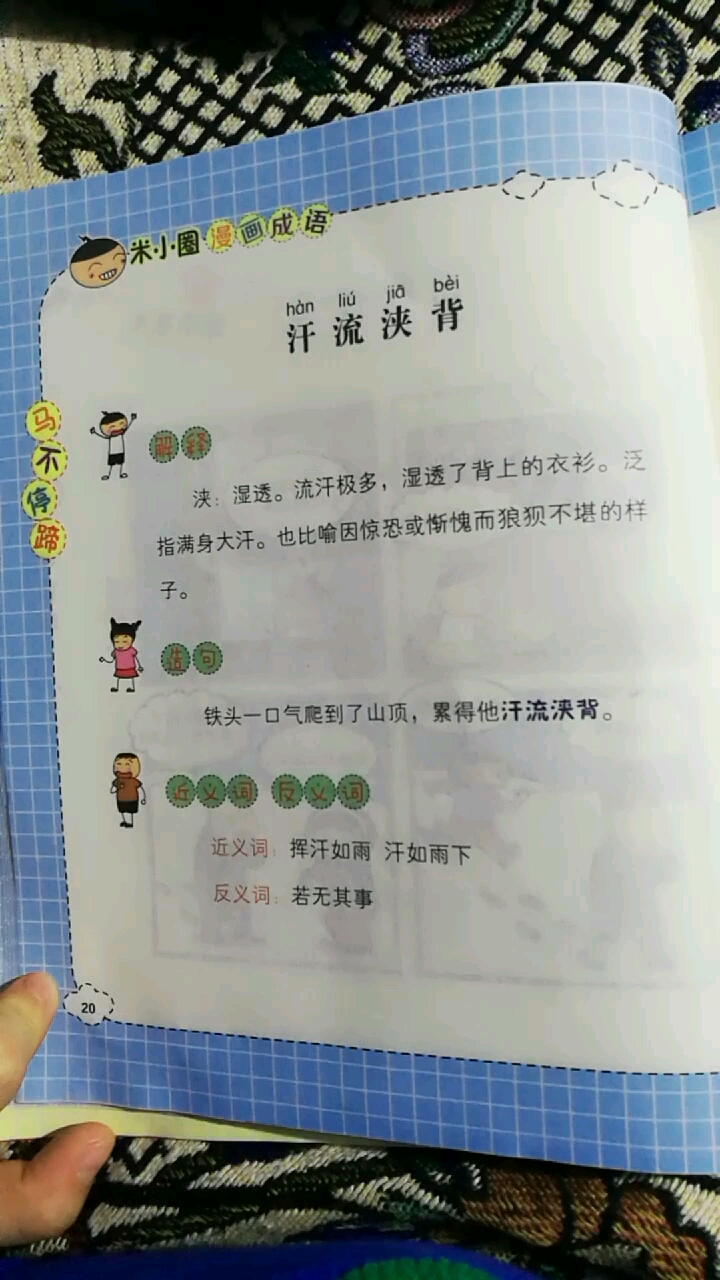 米小圈漫画成语
hàn liú jiā bèi
汗流浃背
马不停蹄
解释
浃：湿透。流汗极多，湿透了背上的衣衫。泛
指满身大汗。也比喻因惊恐或惭愧而狼狈不堪的样
子。
造句
铁头一口气爬到了山顶，累得他汗流浃背。
近义词 反义词
近义词：挥汗如雨 汗如雨下
反义词：若无其事
20